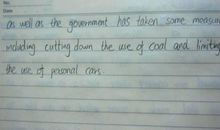 No.
Date
as well as the government has taken some measur
including cutting down the use of coal and limiting
the use of personal cars.